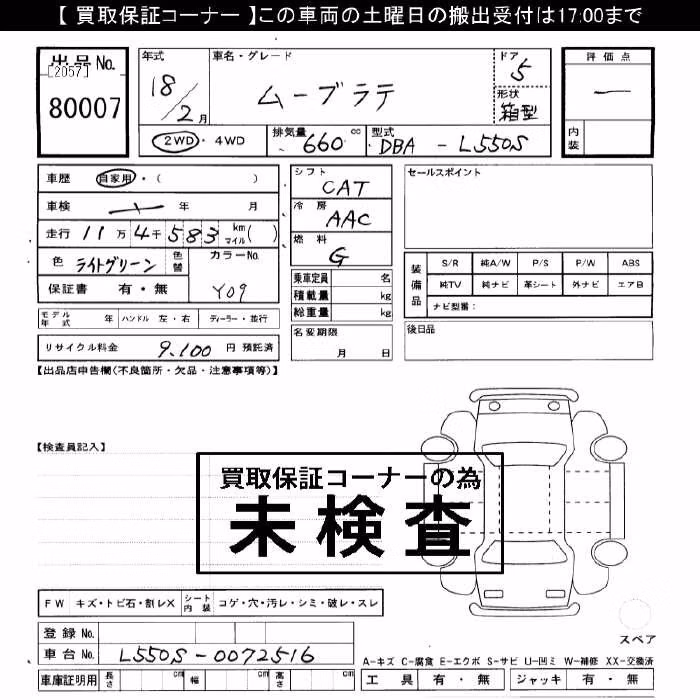 【 買取保証コーナー 】この車両の土曜日の搬出受付は17:00まで
出品No.
[2057]
80007
年式
18/2月
車名・グレード
ムーブラテ
ドア
5
形状
箱型
2WD・4WD
排気量 660 cc
型式 DBA - L550S
評価点
―
内装
車歴 自家用・( )
車検 年 月
走行 11万4千583 km マイル( )
色 ライトグリーン 色替
カラーNo.
Y09
保証書 有・無
モデル年式 年 ハンドル 左・右 ディーラー・並行
リサイクル料金 9,100 円 預託済
シフト
CAT
冷房
AAC
燃料
G
乗車定員 名
積載量 kg
総重量 kg
名変期限
月 日
セールスポイント
装備品
S/R 純A/W P/S P/W ABS
純TV 純ナビ 革シート 外ナビ エアB
ナビ型番:
後日品
【出品店申告欄(不良箇所・欠品・注意事項等)】
【検査員記入】
買取保証コーナーの為
未検査
FW キズ・トビ石・割レX シート内装 コゲ・穴・汚レ・シミ・破レ・スレ
登録No.
車台No. L550S-0072516
車庫証明用 長さ cm 幅 cm 高さ cm
スペア
A-キズ C-腐食 E-エクボ S-サビ U-凹ミ W-補修 XX-交換済
工具 有・無 ジャッキ 有・無